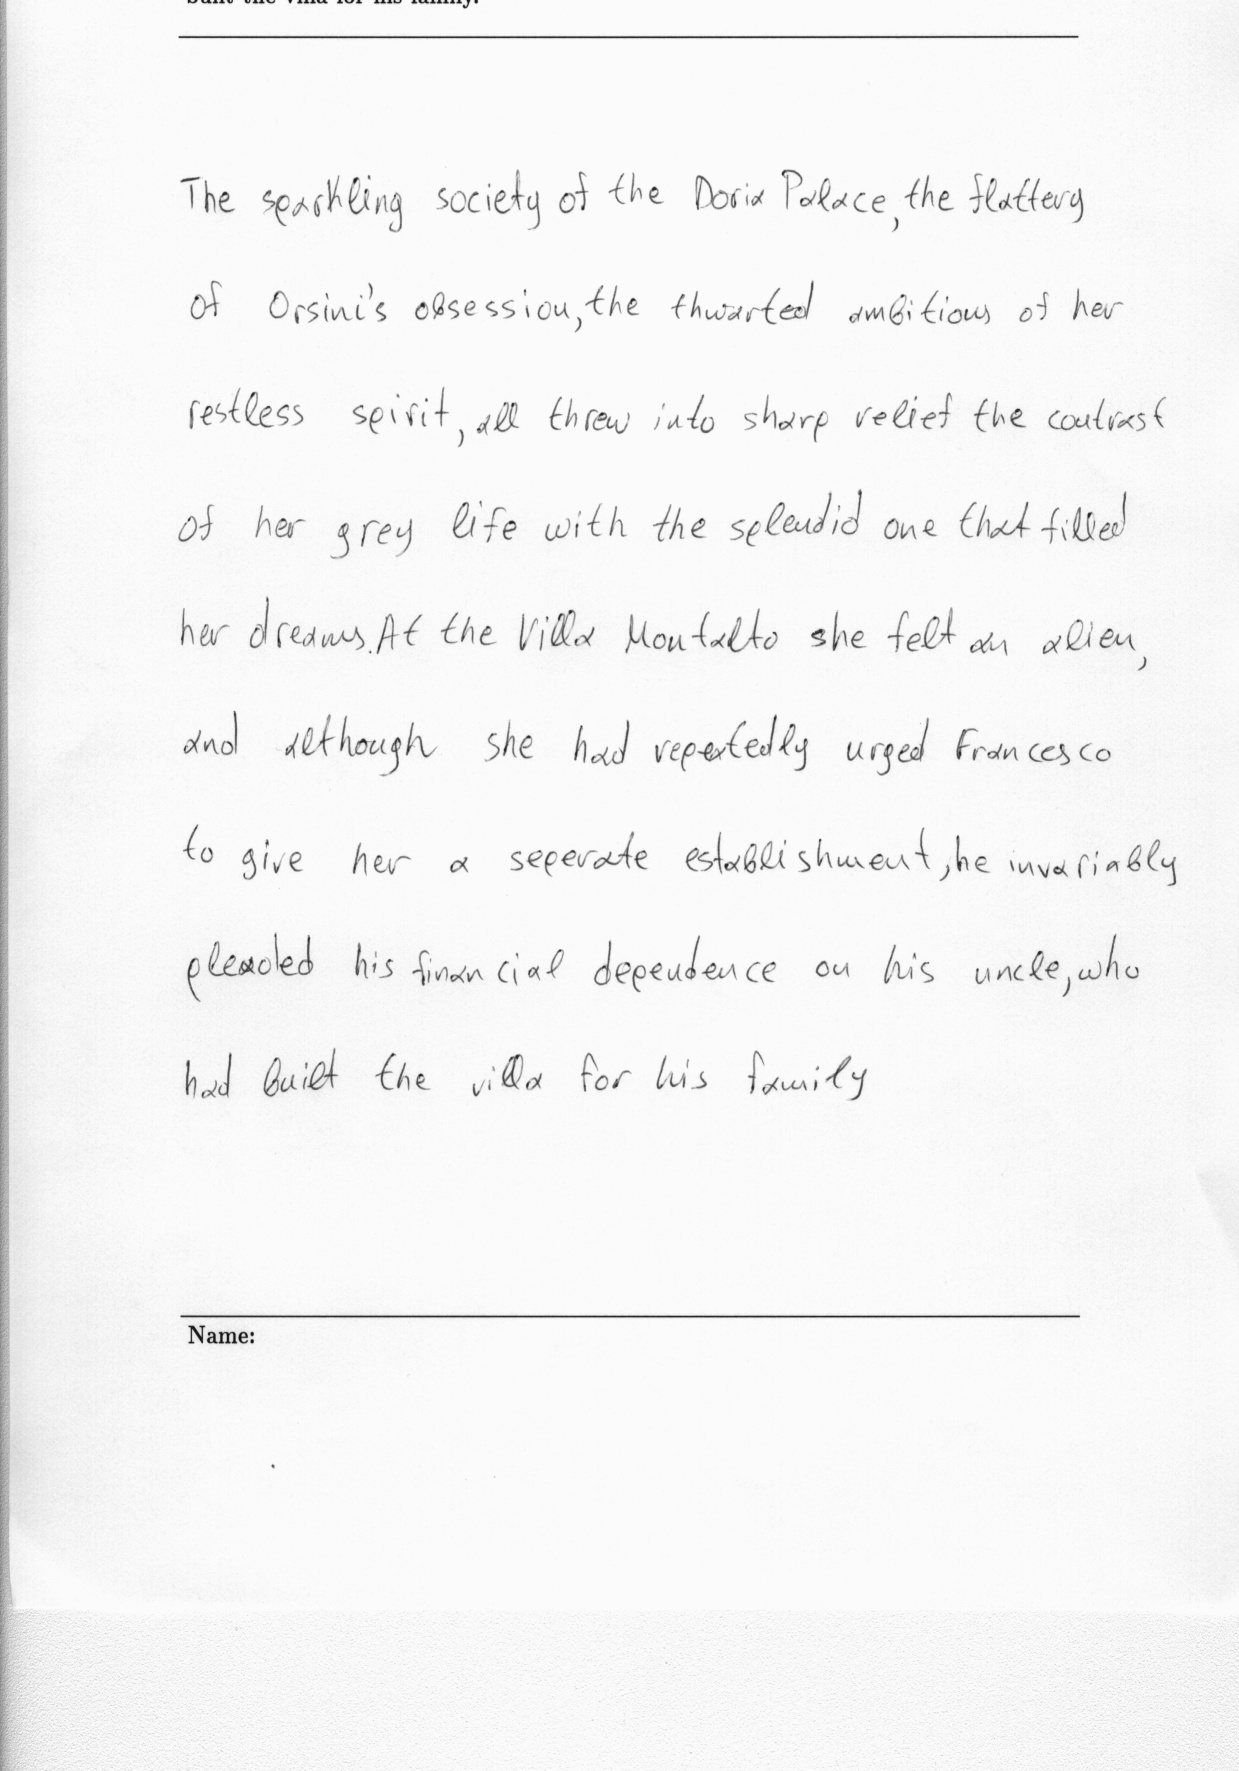 built the villa for his family.
The sparkling society of the Doria Palace, the flattery
of Orsini's obsession, the thwarted ambitions of her
restless spirit, all threw into sharp relief the contrast
of her grey life with the splendid one that filled
her dreams. At the Villa Montalto she felt an alien,
and although she had repeatedly urged Francesco
to give her a seperate establishment, he invariably
pleaded his financial dependence on his uncle, who
had built the villa for his family
Name: